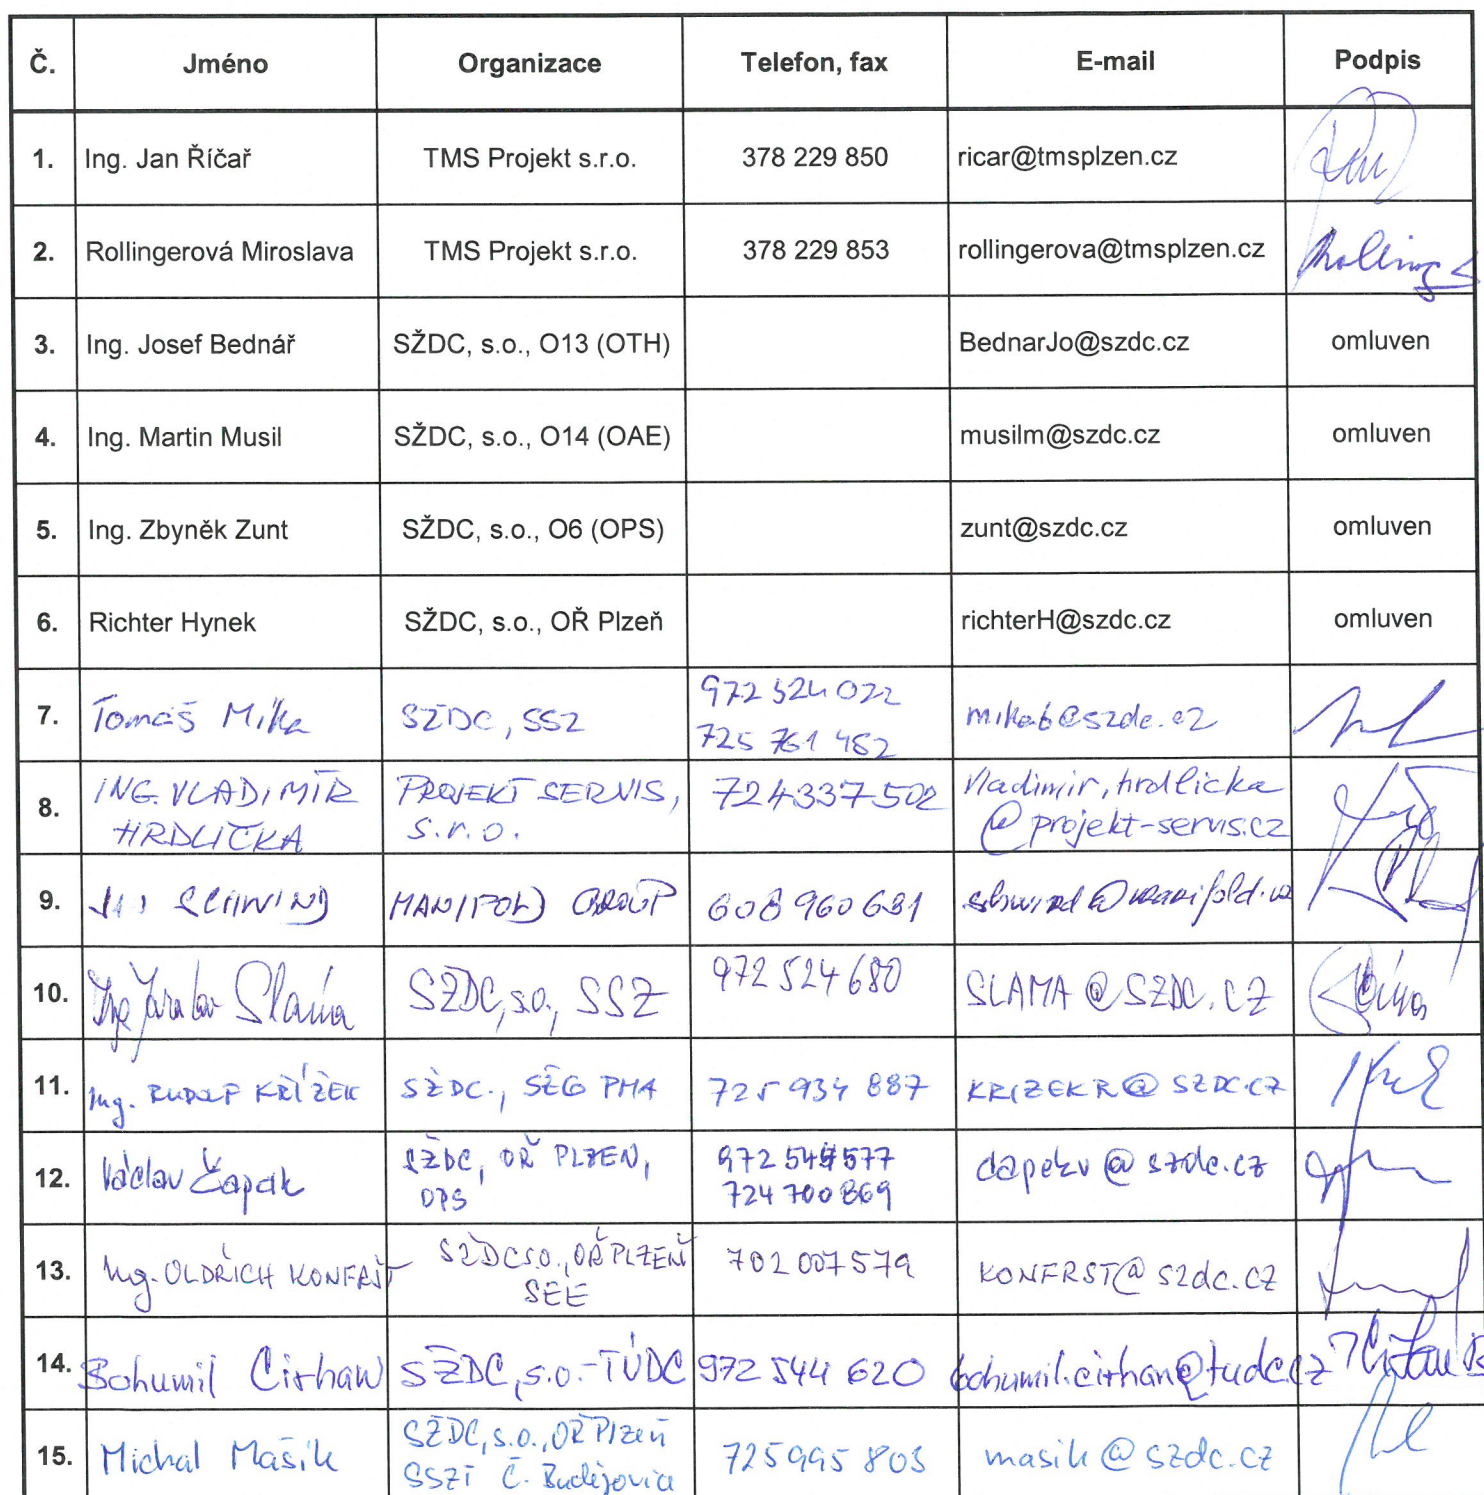 Č. Jméno Organizace Telefon, fax E-mail Podpis
1. Ing. Jan Říčař TMS Projekt s.r.o. 378 229 850 ricar@tmsplzen.cz
2. Rollingerová Miroslava TMS Projekt s.r.o. 378 229 853 rollingerova@tmsplzen.cz
3. Ing. Josef Bednář SŽDC, s.o., O13 (OTH) BednarJo@szdc.cz omluven
4. Ing. Martin Musil SŽDC, s.o., O14 (OAE) musilm@szdc.cz omluven
5. Ing. Zbyněk Zunt SŽDC, s.o., O6 (OPS) zunt@szdc.cz omluven
6. Richter Hynek SŽDC, s.o., OŘ Plzeň richterH@szdc.cz omluven
7. Tomáš Mika SŽDC, SSZ 972 524 022
725 761 482
8. ING. VLADIMÍR PROJEKT SERVIS, 724337502 vladimir.hrdlicka
HRDLIČKA s.r.o. @projekt-servis.cz
9. MANIFOLD GROUP 608 960 631
10. Ing. Jaroslav Sláma SŽDC, s.o., SSZ 972 524 680 SLAMA@SZDC.CZ
11. Ing. RUDOLF KŘÍŽEK SŽDC., SŽG PHA 725 934 887 KRIZEKR@SZDC.CZ
12. Václav Čapek SŽDC, OŘ PLZEŇ, 972 544 577 capekv@szdc.cz
OPS 724 700 869
13. Ing. OLDŘICH KONFRŠT SŽDC s.o., OŘ PLZEŇ 702 007 579 KONFRST@szdc.cz
SEE
14. Bohumil Cirhan SŽDC, s.o.-TÚDC 972 544 620 bohumil.cirhan@tudc.cz
15. Michal Mašik SŽDC, s.o., OŘ Plzeň 725 995 803 masik@szdc.cz
SSZT Č. Budějovice